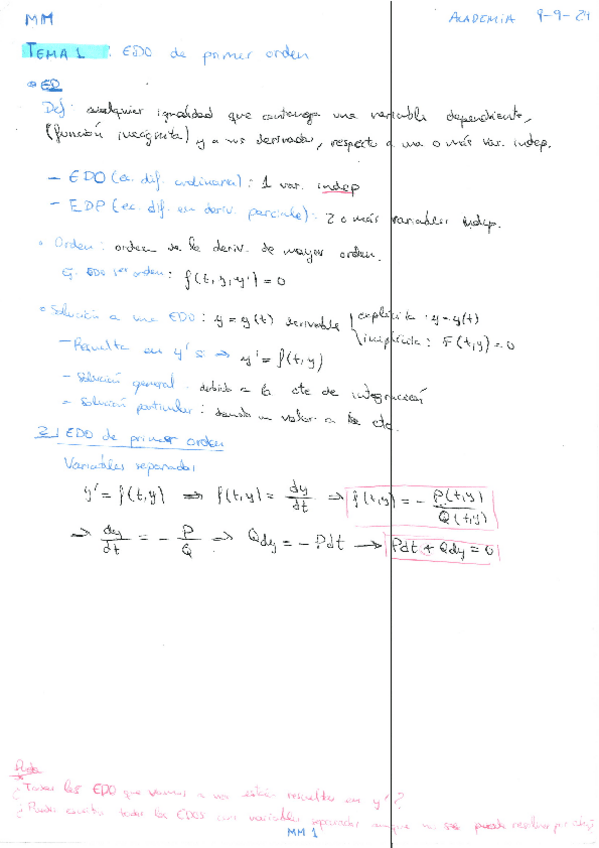 MM
ACADEMIA 9-9-24
TEMA 1 : EDO de primer orden
ED
Def: cualquier igualdad que contenga una variable dependiente,
(función incógnita) y a sus derivadas, respecto a una o más var. indep.
- EDO (ec. dif. ordinaria): 1 var. indep
- EDP (ec. dif. en deriv. parciales): 2 o más variables indep.
Orden: orden de la deriv. de mayor orden.
Ej. EDO 1er orden: f(t,y,y') = 0
Solución a una EDO: y = y(t) derivable explícita: y = y(t)
implícita: F(t,y) = 0
- Resuelta en y' si ⇒ y' = f(t,y)
- Solución general: debido a la cte de integración
- Solución particular: dando un valor a la cte.
EDO de primer orden
Variables separadas
y' = f(t,y) ⇒ f(t,y) = dy/dt ⇒ f(t,y) = - P(t,y)/Q(t,y)
→ dy/dt = - P/Q → Qdy = - Pdt → Pdt + Qdy = 0
¿Todas las EDO que vamos a ver están resueltas en y'?
variables separadas aunque no se
MM 1